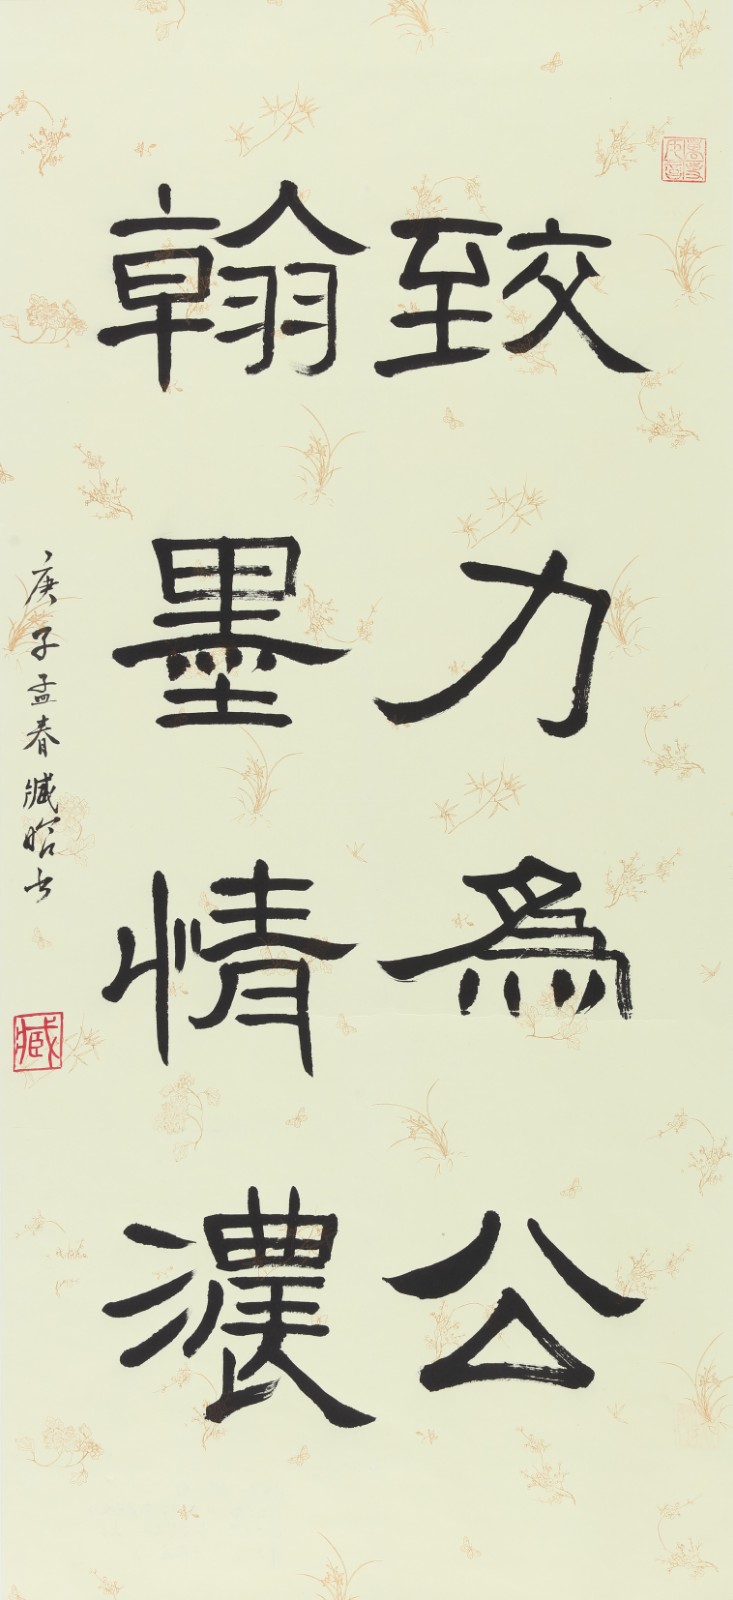 致力為公
翰墨情濃
庚子孟春臧书
臧